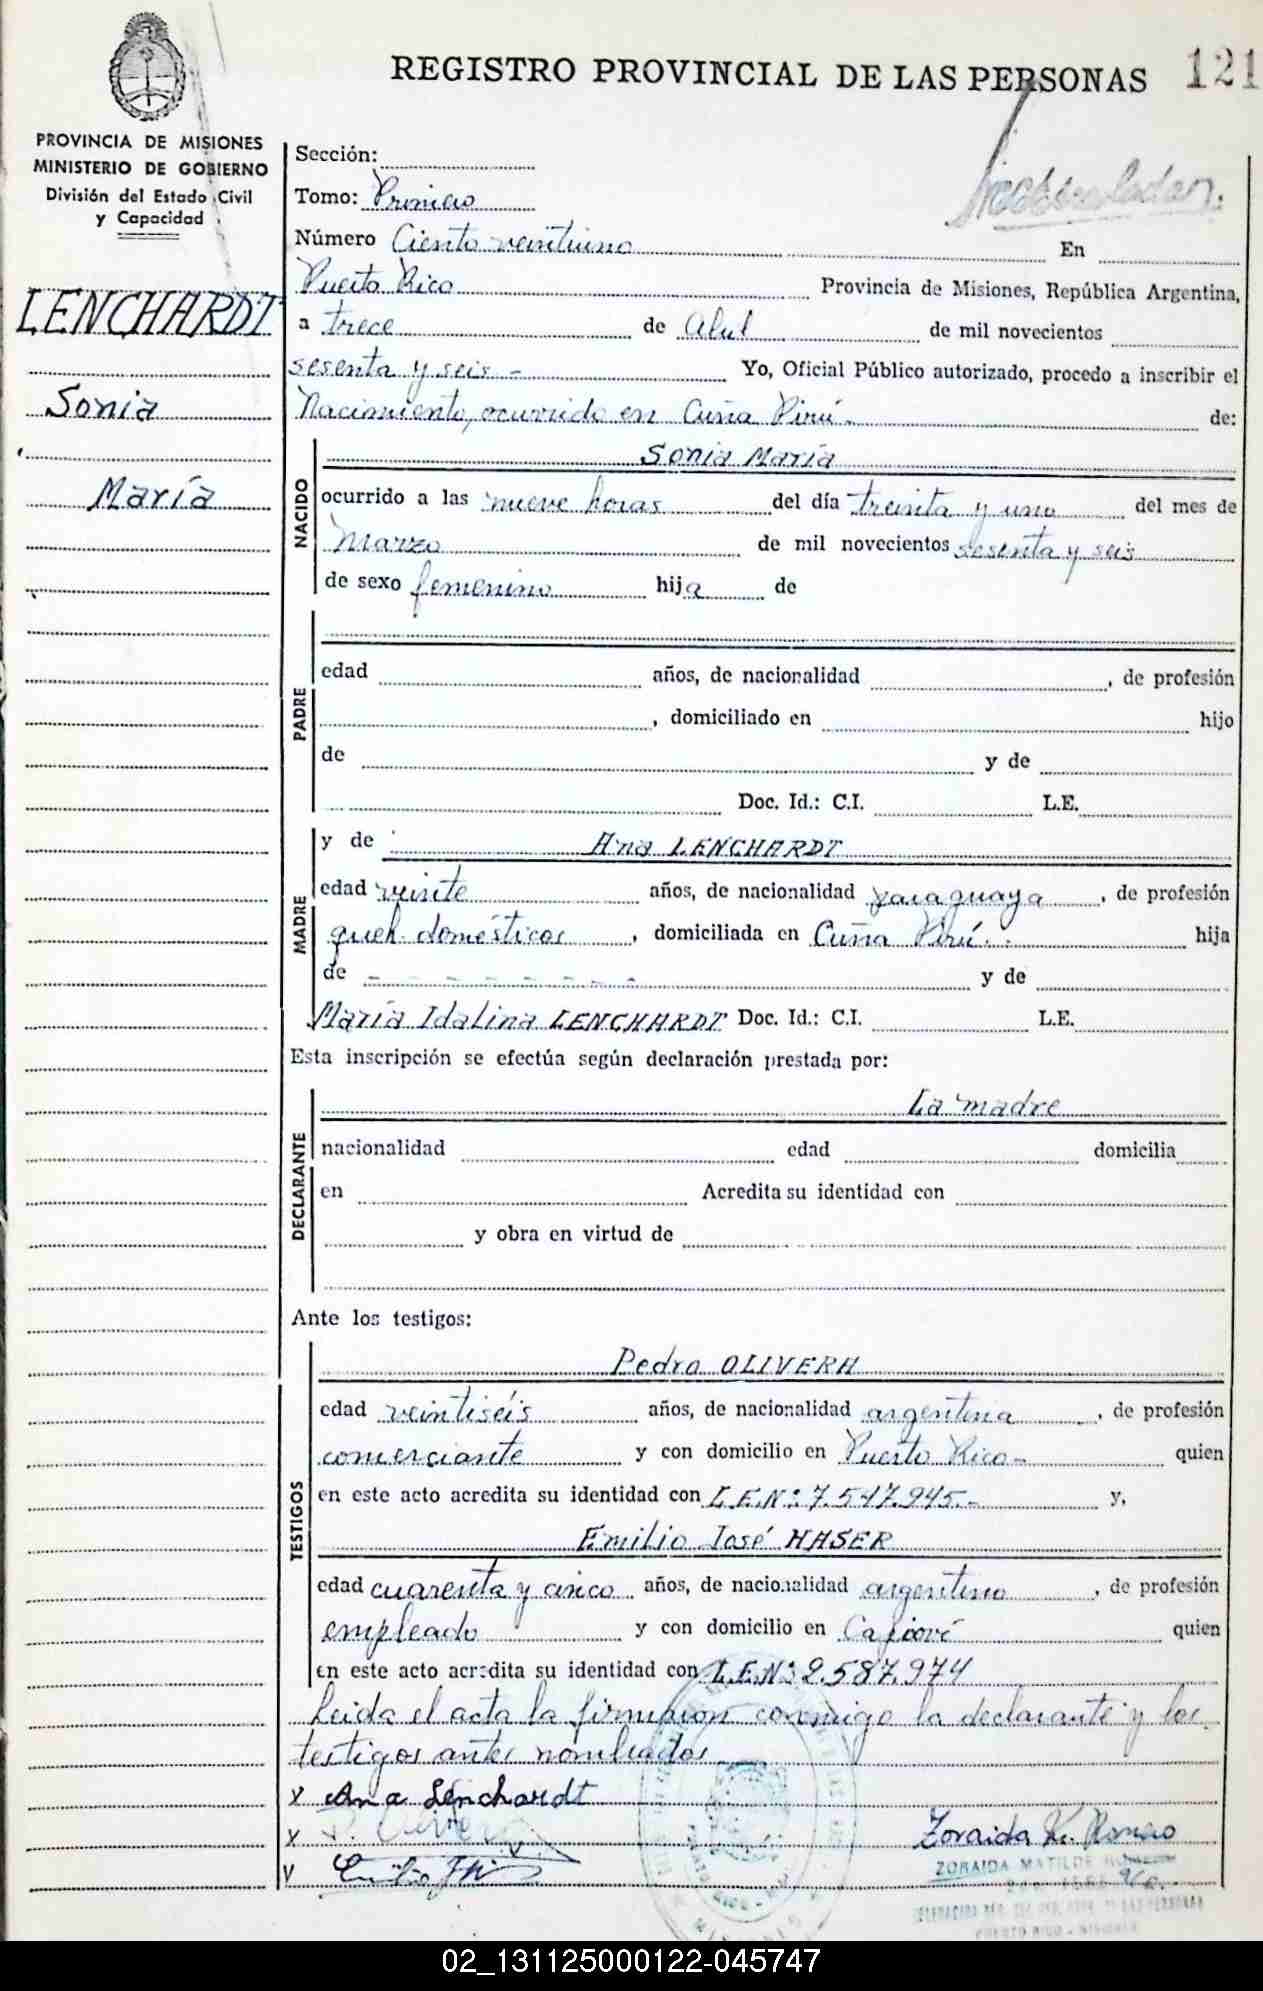 REGISTRO PROVINCIAL DE LAS PERSONAS 121
PROVINCIA DE MISIONES
MINISTERIO DE GOBIERNO
División del Estado Civil
y Capacidad
LENCHARDT
Sonia
María
Sección:
Tomo: Primero
Número Ciento veintiuno En
Puerto Rico Provincia de Misiones, República Argentina,
a trece de Abril de mil novecientos
sesenta y seis - Yo, Oficial Público autorizado, procedo a inscribir el
Nacimiento, ocurrido en Cuña Pirú - de:
NACIDO
Sonia María
ocurrido a las nueve horas del día treinta y uno del mes de
Marzo de mil novecientos sesenta y seis
de sexo femenino hija de
PADRE
edad años, de nacionalidad , de profesión
, domiciliado en hijo
de y de
Doc. Id.: C.I. L.E.
MADRE
y de Ana LENCHARDT
edad veinte años, de nacionalidad paraguaya , de profesión
queh. domésticos , domiciliada en Cuña Pirú. hija
de - - - - - - - - y de
María Idalina LENCHARDT Doc. Id.: C.I. L.E.
Esta inscripción se efectúa según declaración prestada por:
DECLARANTE
La madre
nacionalidad edad domicilia
en Acredita su identidad con
y obra en virtud de
Ante los testigos:
TESTIGOS
Pedro OLIVERA
edad veintiséis años, de nacionalidad argentina , de profesión
comerciante y con domicilio en Puerto Rico - quien
en este acto acredita su identidad con L.E.Nº: 7.547.945.- y,
Emilio José HASER
edad cuarenta y cinco años, de nacionalidad argentino , de profesión
empleado y con domicilio en Capioví quien
en este acto acredita su identidad con L.E.Nº: 2.587.974
Leida el acta la firmaron conmigo la declarante y los
testigos antes nombrados
x Ana Lenchardt
x
v
Zoraida Romero
ZORAIDA MATILDE
PUERTO RICO - MISIONES
02_131125000122-045747